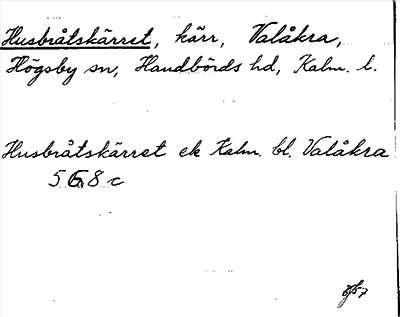 Husbråtskärret, kärr, Valåkra,
Högsby sn, Handbörds hd, Kalm. l.
Husbråtskärret ek Kalm. bl. Valåkra
5G8c